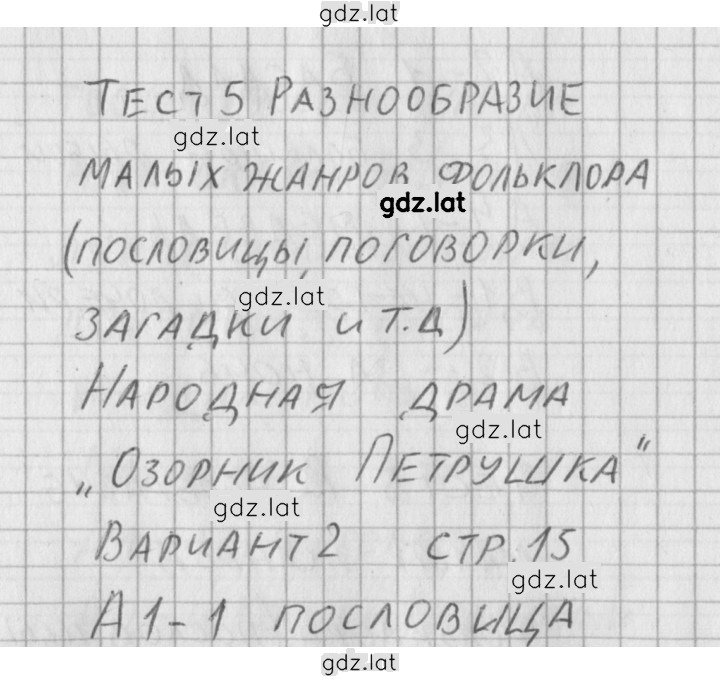 gdz.lat
ТЕСТ 5 РАЗНООБРАЗИЕ
gdz.lat
МАЛЫХ ЖАНРОВ ФОЛЬКЛОРА
gdz.lat
(ПОСЛОВИЦЫ, ПОГОВОРКИ,
gdz.lat
ЗАГАДКИ И Т.Д)
НАРОДНАЯ ДРАМА
gdz.lat
„ОЗОРНИК ПЕТРУШКА"
gdz.lat
ВАРИАНТ 2 СТР. 15
gdz.lat
А1-1 ПОСЛОВИЦА
gdz.lat